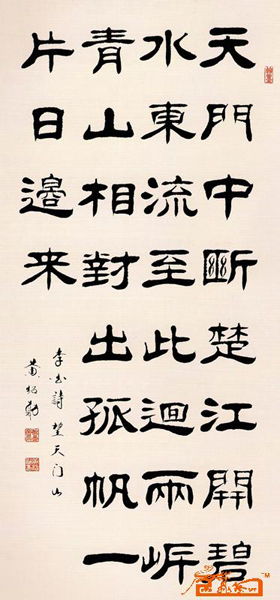 天門中断楚江開碧
水東流至此迴兩岍
青山相對出孤帆一
片日邊来
李白詩望天门山
黄绍勤